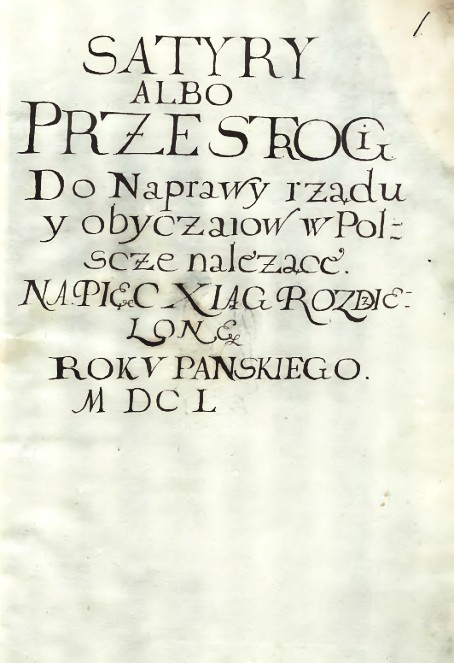 1
SATYRY
ALBO
PRZESTROGI
Do Naprawy rządu
y obyczaiow w Pol=
scże należącé.
NA PIĘC XIĄG ROZDZIE=
LONE
ROKV PANSKIEGO.
M DC L